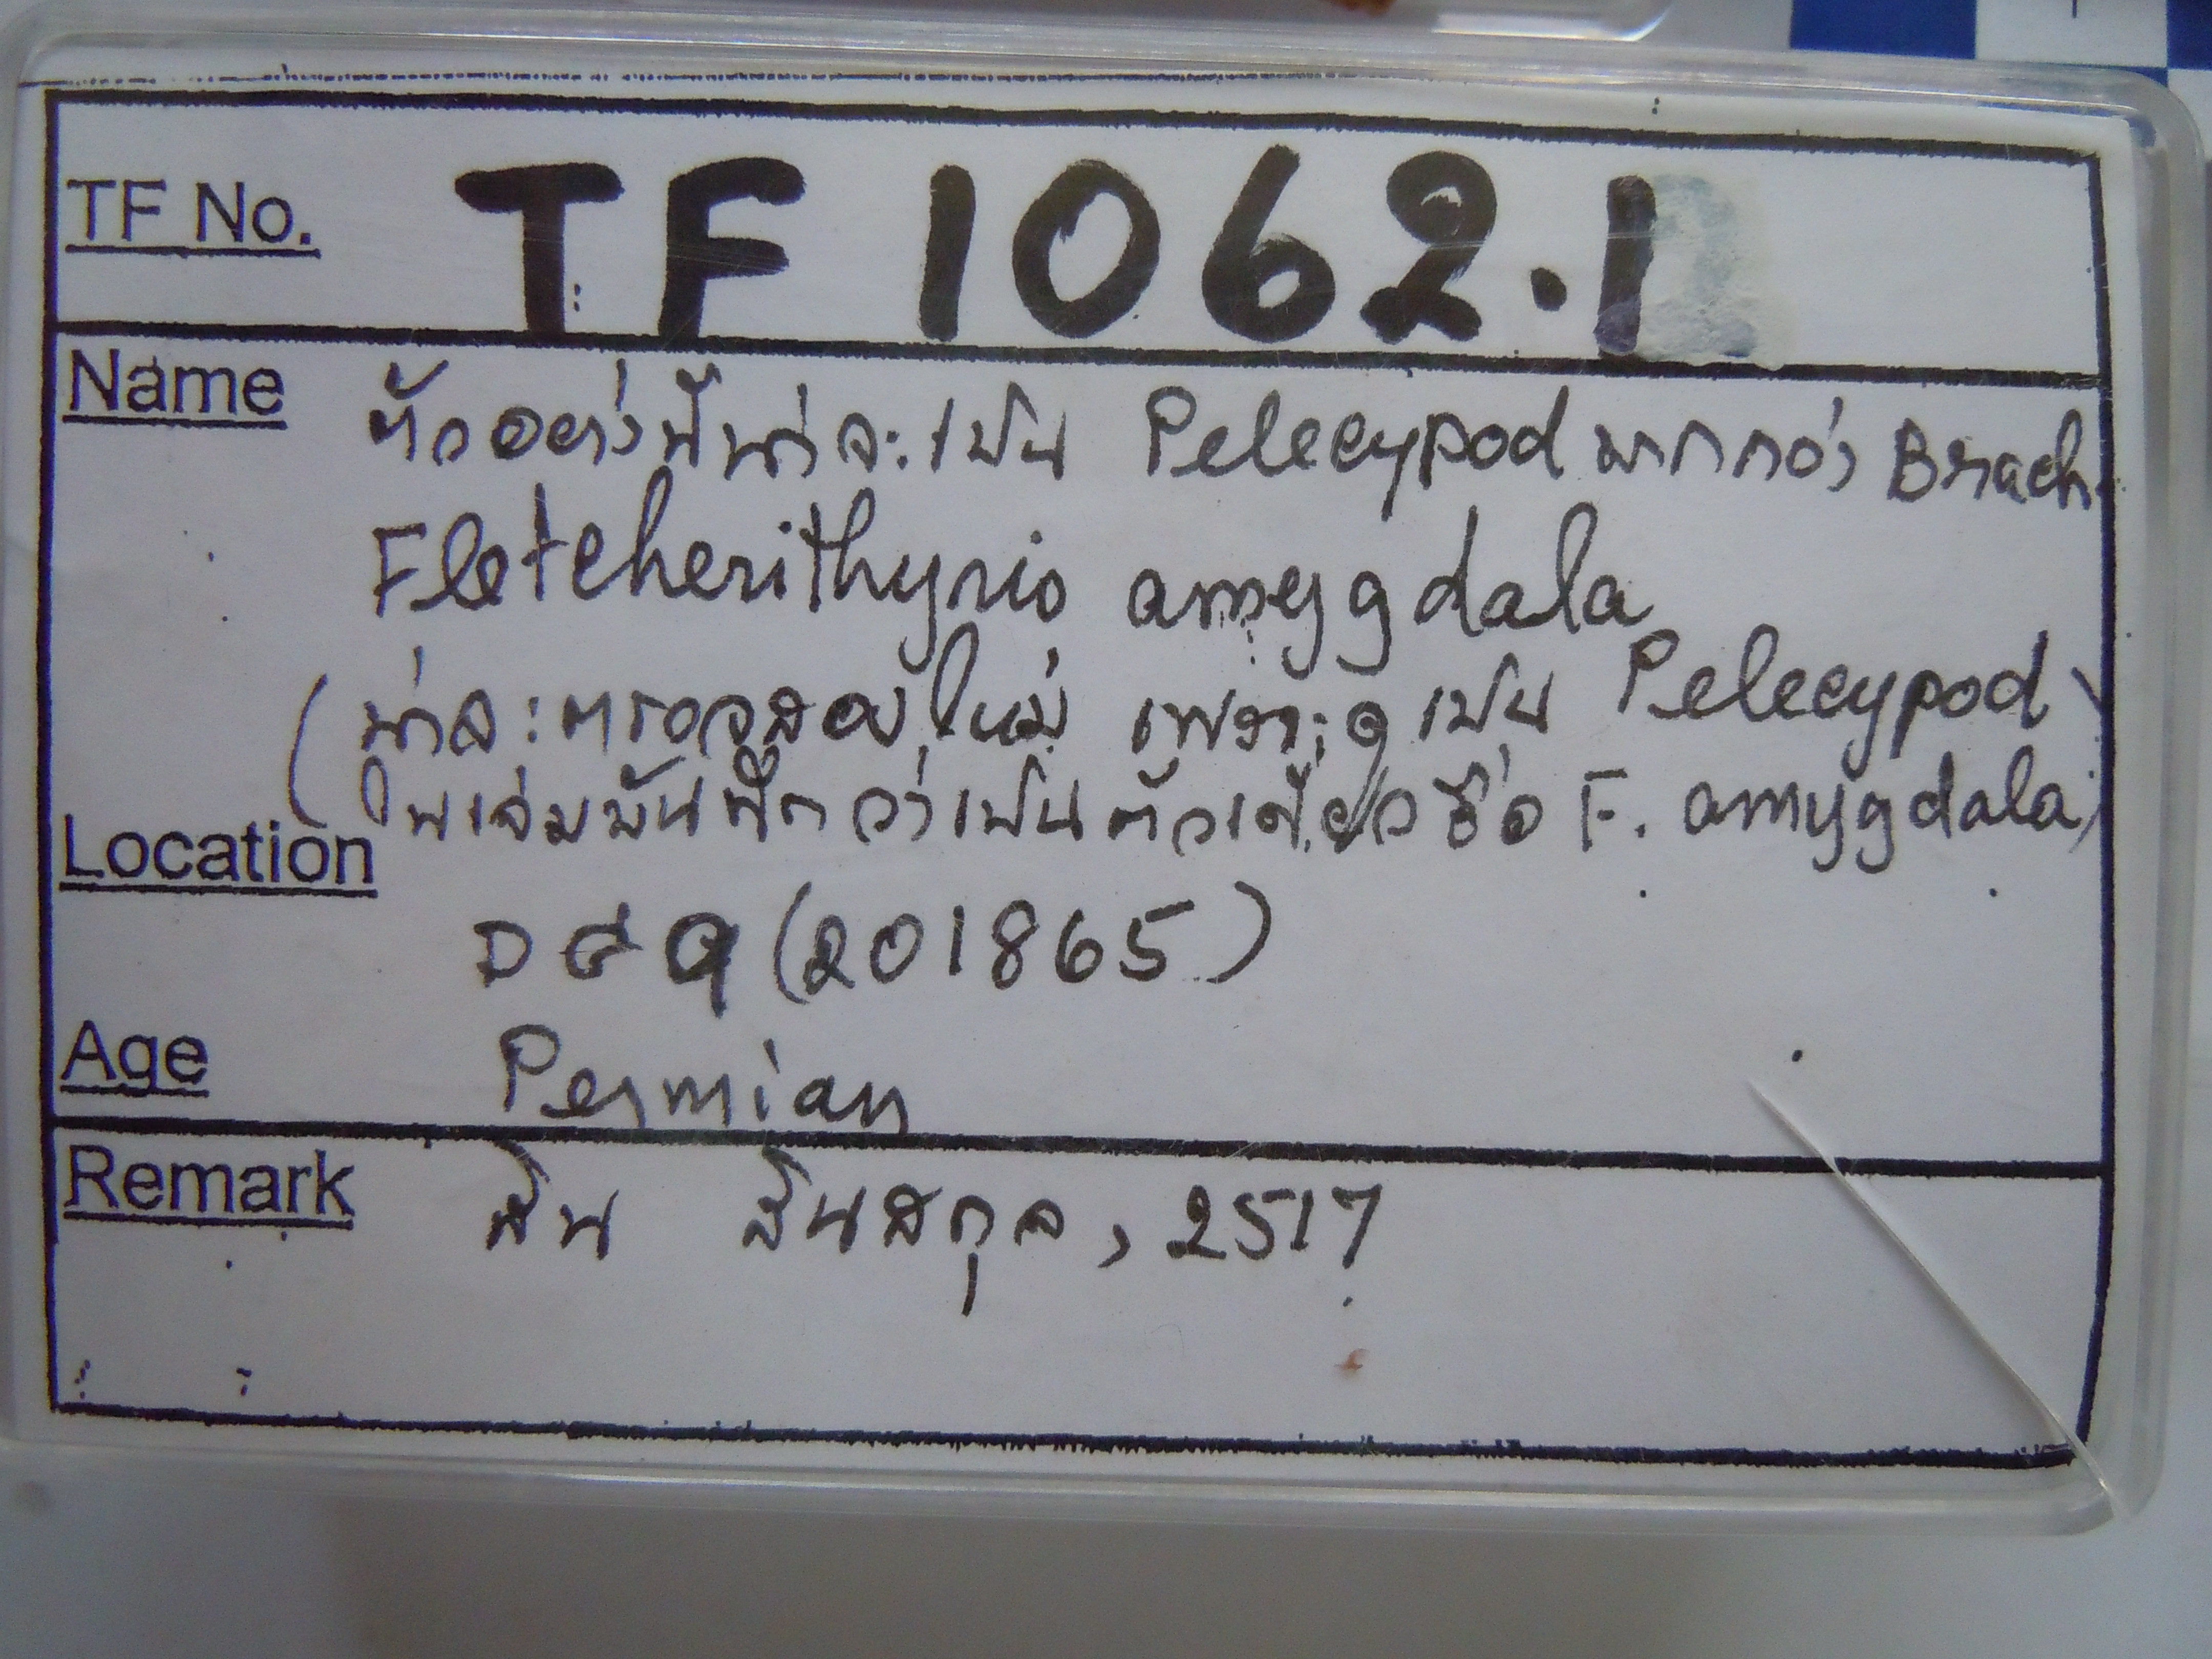 TF No. TF 1062.1
Name ตัวอย่างนี้น่าจะเป็น Pelecypod มากกว่า Brach.
Fletcherithyris amygdala
(น่าจะตรวจสอบใหม่ เพราะดูเป็น Pelecypod
ในเล่มบันทึกว่าเป็นตัวเดียวชื่อ F. amygdala)
Location
DGQ (201865)
Age Permian
Remark สิน สินสกุล, 2517